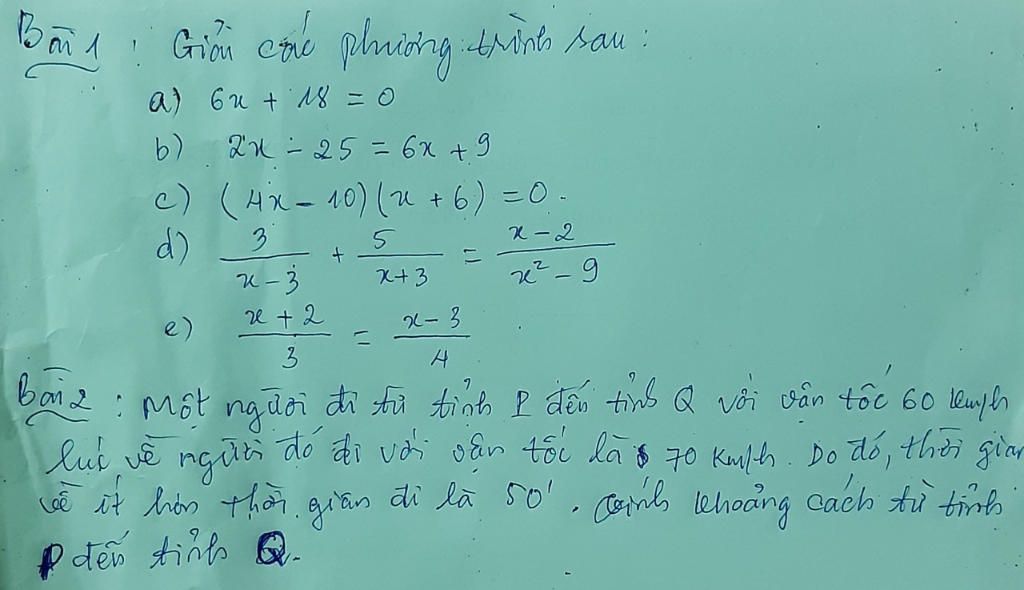 Bài 1 : Giải các phương trình sau :
a) 6x + 18 = 0
b) 2x - 25 = 6x + 9
c) (4x - 10)(x + 6) = 0.
d) 3/(x-3) + 5/(x+3) = (x-2)/(x² - 9)
e) (x+2)/3 = (x-3)/4
Bài 2 : Một người đi từ tỉnh P đến tỉnh Q với vận tốc 60 km/h
lúc về người đó đi với vận tốc là 70 km/h. Do đó, thời gian
về ít hơn thời gian đi là 50'. Tính khoảng cách từ tỉnh
P đến tỉnh Q.